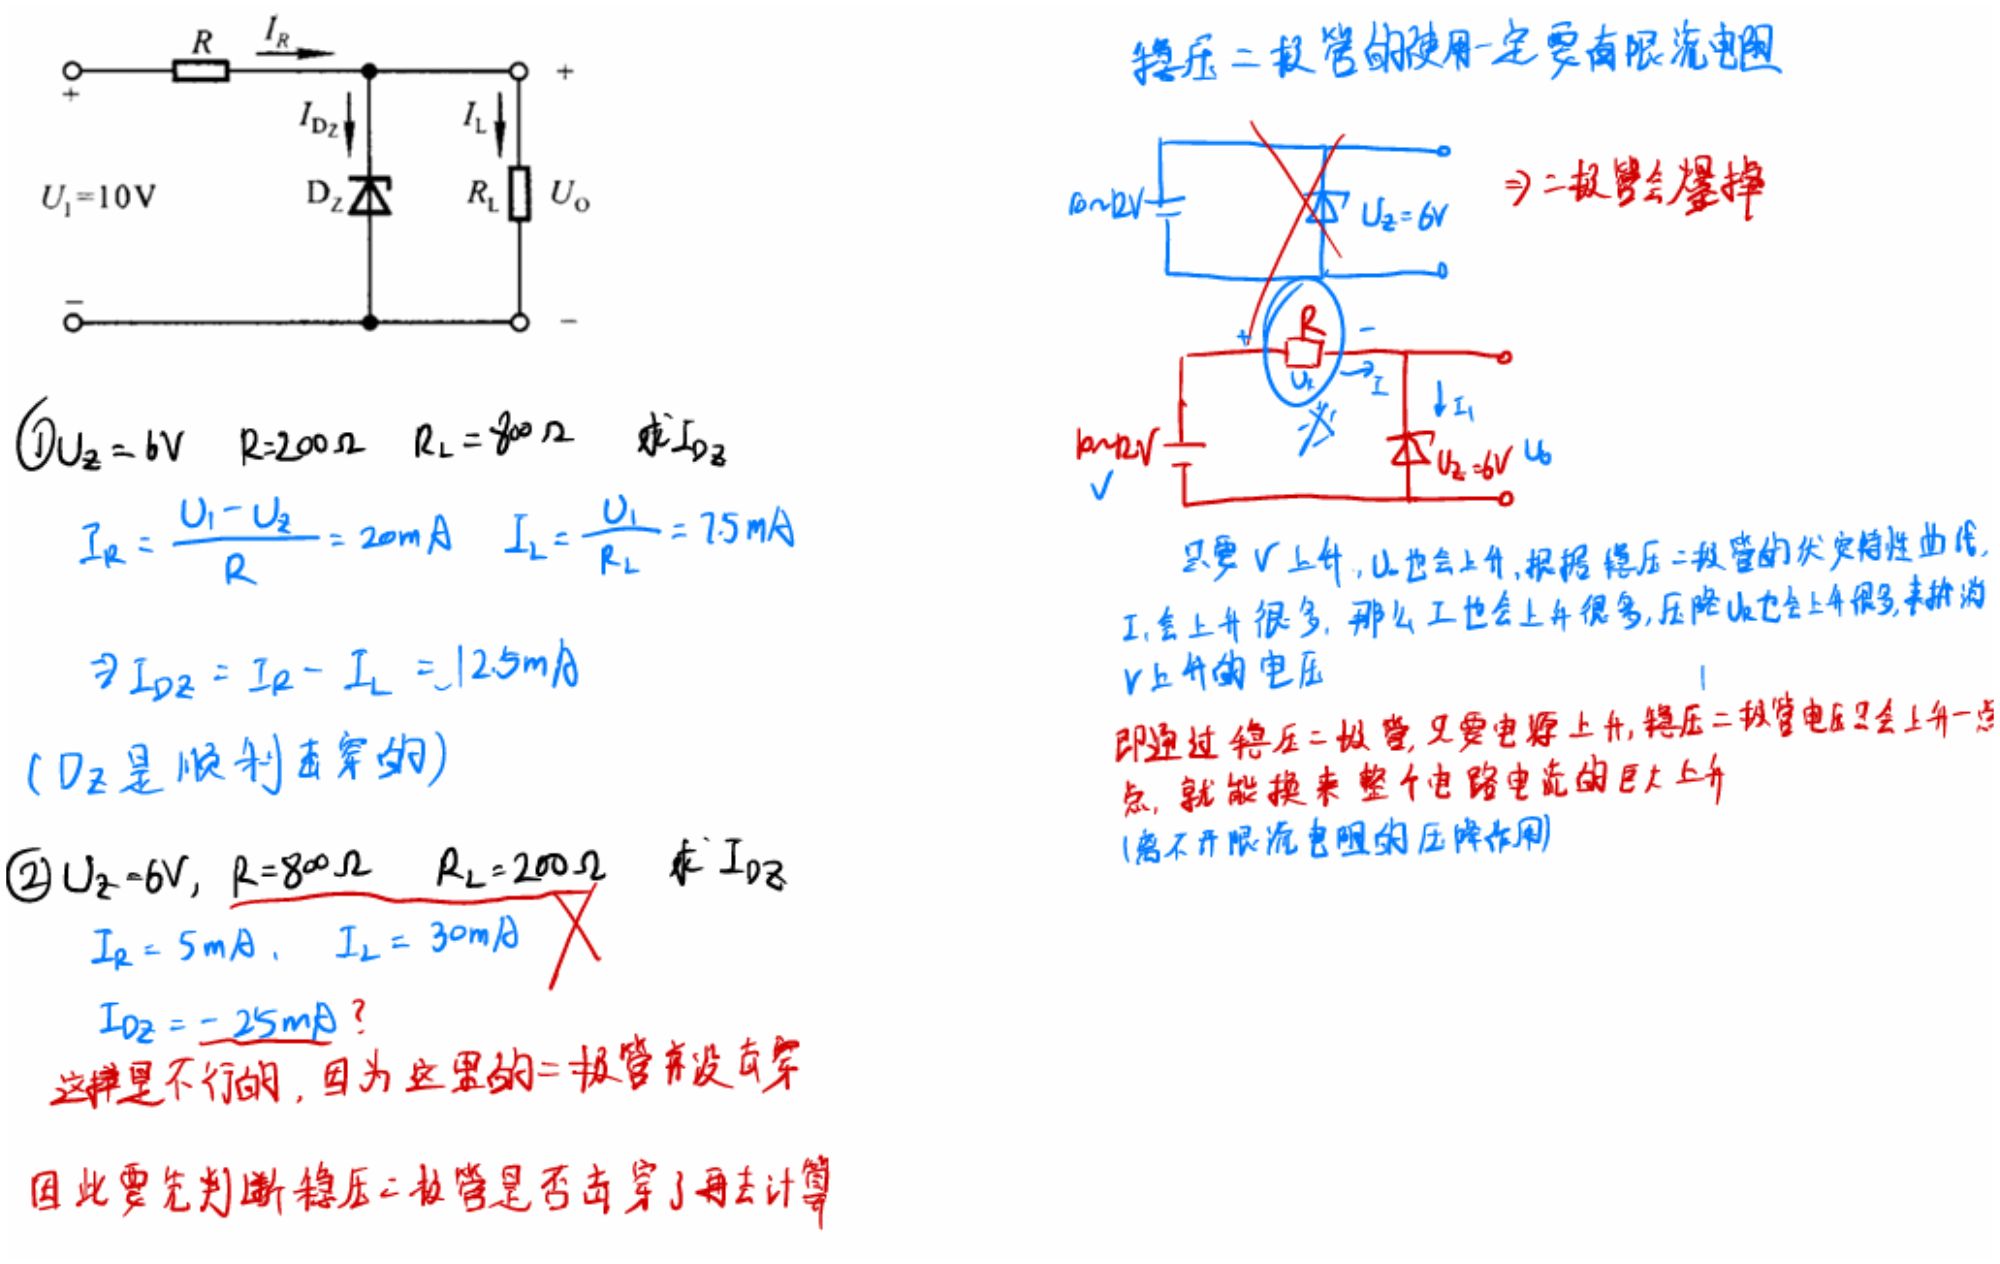 R
I_R
+
+
I_{DZ}
I_L
U_I=10V
D_Z
R_L
U_O
−
−
①U_Z=6V R=200Ω R_L=800Ω 求I_{DZ}
I_R = \frac{U_1-U_Z}{R} = 20mA I_L = \frac{U_1}{R_L} = 7.5mA
⇒ I_{DZ} = I_R - I_L = 12.5mA
(D_Z是顺利击穿的)
②U_Z=6V, R=800Ω R_L=200Ω 求I_{DZ}
I_R = 5mA, I_L = 30mA
I_{DZ} = -25mA?
这样是不行的,因为这里的二极管并没击穿
因此要先判断稳压二极管是否击穿了再去计算
稳压二极管的使用一定要有限流电阻
10~12V
U_Z=6V
⇒二极管会爆掉
+
R
−
U_R
→I
I_1
10~12V
V
U_Z=6V U_o
只要V上升,U_o也会上升,根据稳压二极管的伏安特性曲线,
I_1会上升很多,那么I也会上升很多,压降U_R也会上升很多,来抵消
V上升的电压
即通过稳压二极管,只要电源上升,稳压二极管电压只会上升一点
点,就能换来整个电路电流的巨大上升
(离不开限流电阻的压降作用)